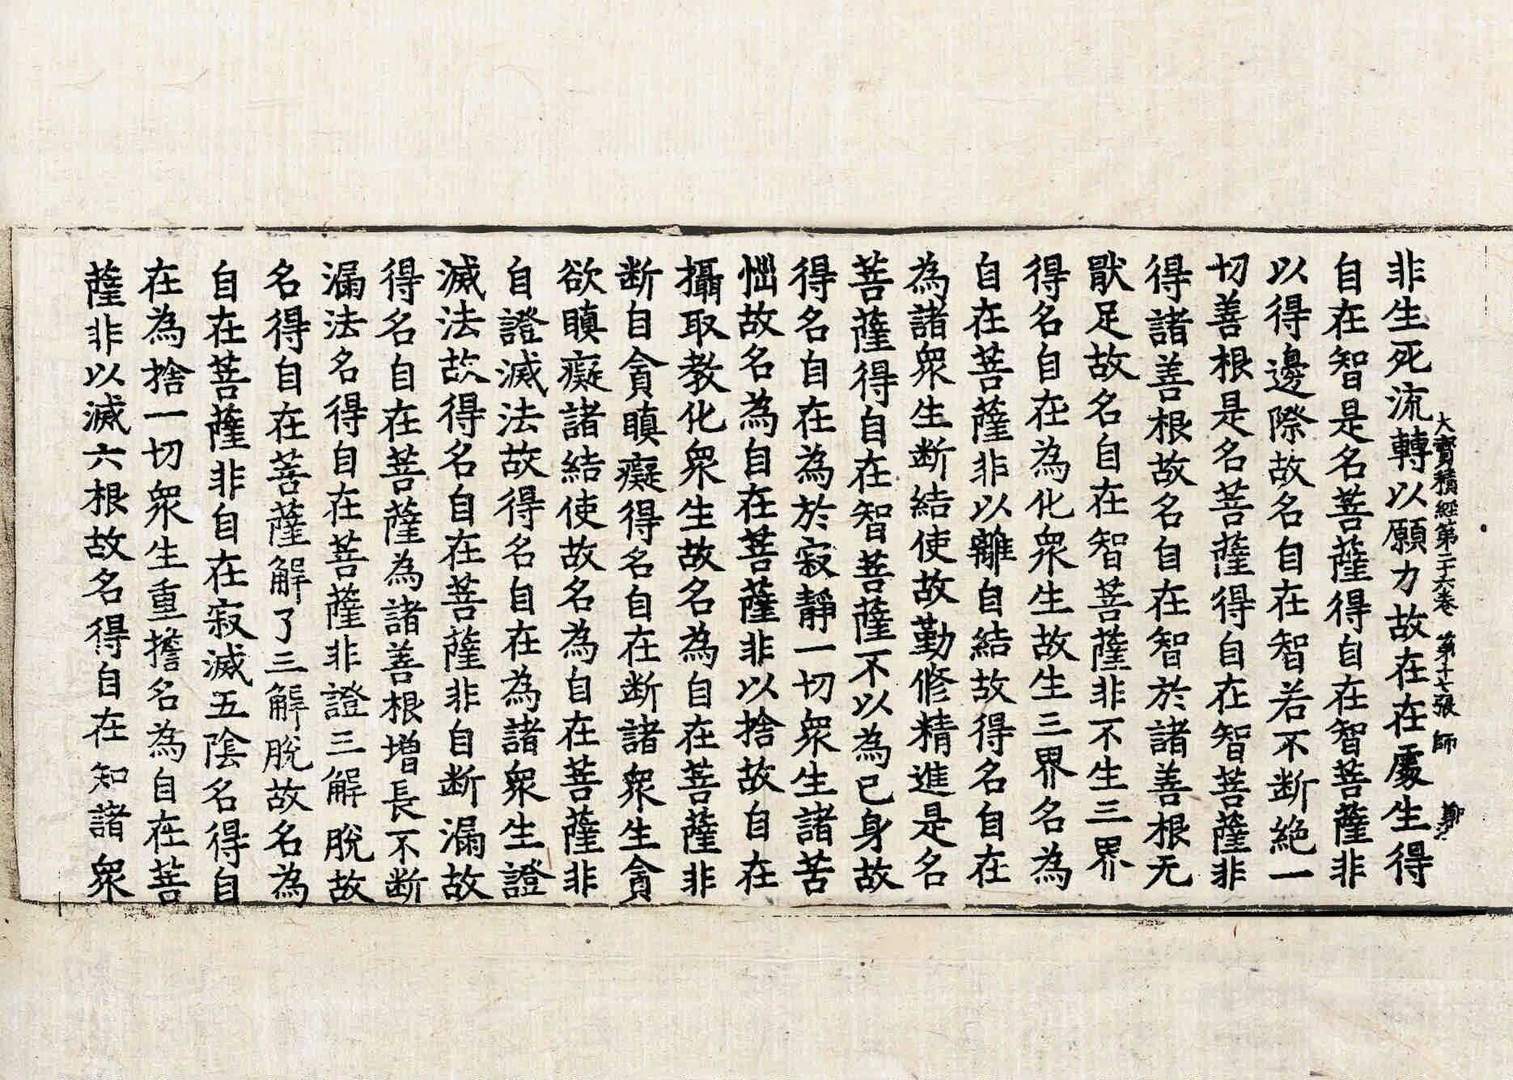 大寶積經第二十六卷 第十七張 師
非生死流轉以願力故在在處生得
自在智是名菩薩得自在智菩薩非
以得邊際故名自在智若不断絶一
切善根是名菩薩得自在智菩薩非
得諸善根故名自在智於諸善根无
猒足故名自在智菩薩非不生三界
得名自在為化衆生故生三界名為
自在菩薩非以離自結故得名自在
為諸衆生断結使故勤修精進是名
菩薩得自在智菩薩不以為已身故
得名自在為於寂静一切衆生諸苦
惱故名為自在菩薩非以捨故自在
攝取教化衆生故名為自在菩薩非
断自貪瞋癡得名自在断諸衆生貪
欲瞋癡諸結使故名為自在菩薩非
自證滅法故得名自在為諸衆生證
滅法故得名自在菩薩非自断漏故
得名自在菩薩為諸善根增長不断
漏法名得自在菩薩非證三解脫故
名得自在菩薩解了三解脫故名為
自在菩薩非自在寂滅五陰名得自
在為捨一切衆生重擔名為自在菩
薩非以滅六根故名得自在知諸衆